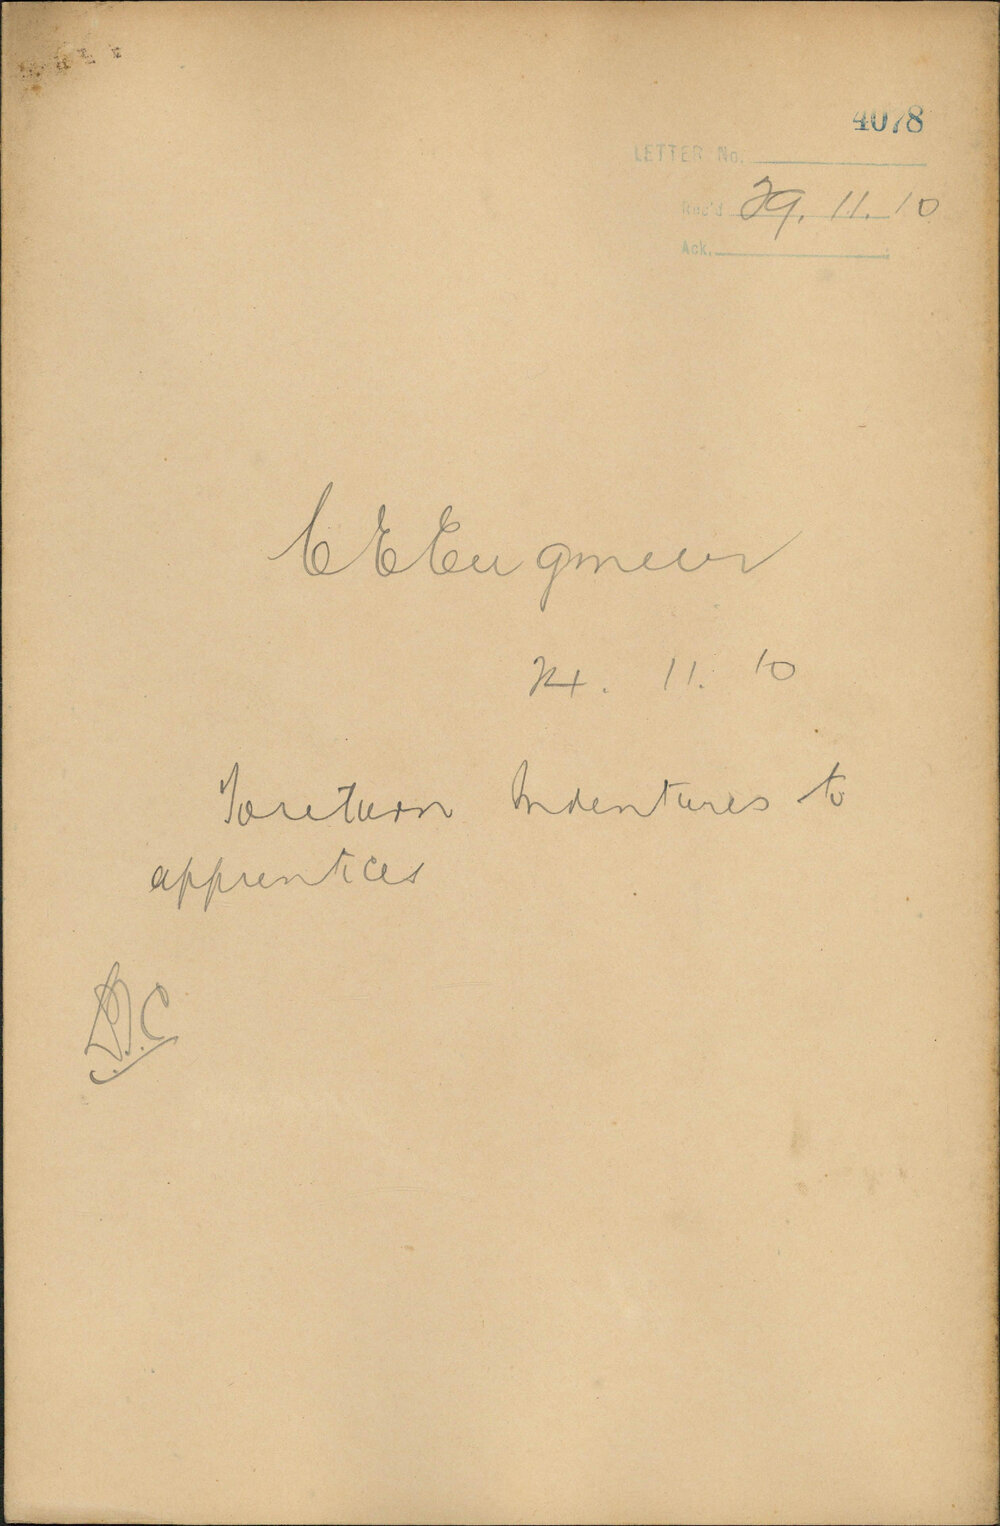 4078
LETTER No.
Rec'd 29. 11. 10
Ack.
C E Engineer
24. 11. 10
To return Indentures to
apprentices